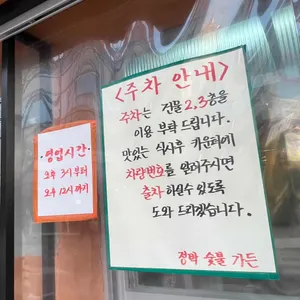 <주차 안내>
주차는 건물 2,3층을
이용 부탁 드립니다.
맛있는 식사후 카운터에
차량번호를 알려주시면
출차 하실수 있도록
도와 드리겠습니다.
정박 숯불 가든
·영업시간·
오후 3시 부터
오후 12시 까지